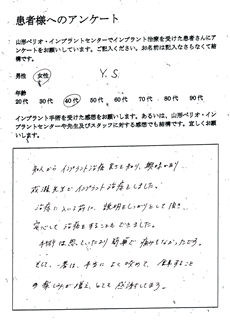 患者様へのアンケート
山形ペリオ・インプラントセンターでインプラント治療を受けた患者さんにア
ンケートをお願いしています。ご記入ください。お名前は記入なさらなくて結
構です。
男性 女性 Y.S.
年齢
20代 30代 40代 50代 60代 70代 80代 90代
インプラント手術を受けた感想をお願いします。あるいは、山形ペリオ・イン
プラントセンターや先生及びスタッフに対する感想でも結構です。宜しくお願
いします。
知人から インプラント治療
インプラント治療をしました。
説明をしっかりとして頂き
安心して治療をすることができました。
手術は思っていたより簡単で 痛みもなかったです。
そして、一番は、
が増え、とても感謝してします。